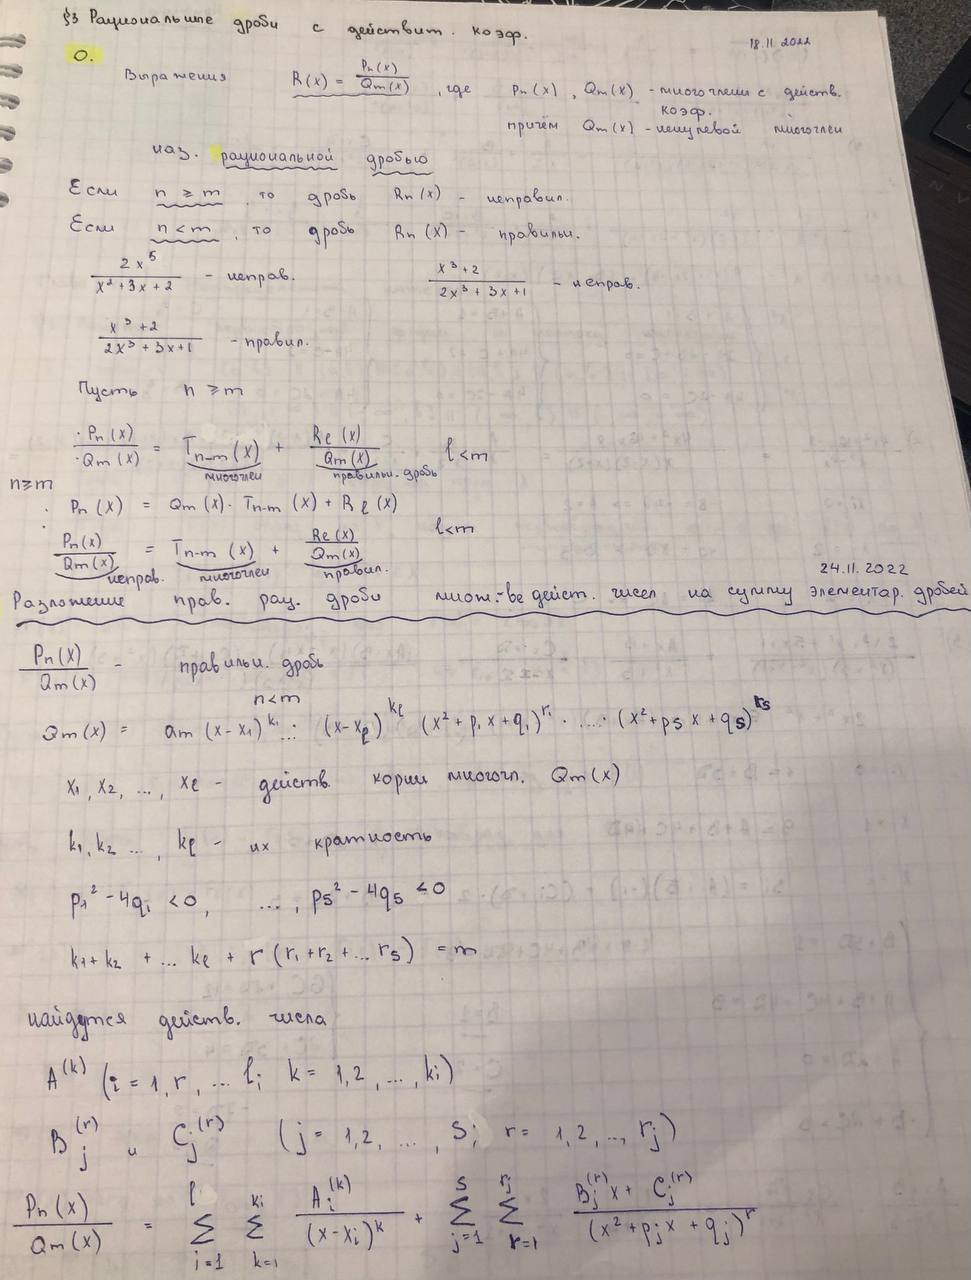 §3 Рациональные дроби с действит. коэф.
18.11.2022
0.
Выражения R(x) = Pn(x)/Qm(x), где Pn(x), Qm(x) - многочлены с действ. коэф.
причём Qm(x) - ненулевой многочлен
наз. рациональной дробью
Если n ≥ m, то дробь Rn(x) - неправил.
Если n < m, то дробь Rn(x) - правильн.
2x^5/(x²+3x+2) - неправ. (x³+2)/(2x³+3x+1) - неправ.
(x³+2)/(2x³+3x+1) - правил.
Пусть n ≥ m
Pn(x)/Qm(x) = Tn-m(x) + Rl(x)/Qm(x) l < m
многочлен правильн. дробь
n≥m
Pn(x) = Qm(x) · Tn-m(x) + Rl(x)
l<m
Pn(x)/Qm(x) = Tn-m(x) + Rl(x)/Qm(x)
неправ. многочлен правил.
24.11.2022
Разложение прав. рац. дроби множ-ве дейст. чисел на сумму элементар. дробей
Pn(x)/Qm(x) - правильн. дробь
n<m
Qm(x) = am (x-x1)^k1 ... (x-xl)^kl (x²+p1x+q1)^r1 · .... · (x²+psx+qs)^rs
x1, x2, ..., xl - действ. корни многочл. Qm(x)
k1, k2 ..., kl - их кратность
p1² - 4q1 < 0, ..., ps² - 4qs < 0
k1+k2 + ... kl + r (r1+r2+...rs) = m
найдутся действ. числа
A^(k) (i = 1, r, ... l; k = 1,2, ..., ki)
Bj^(r) и Cj^(r) (j = 1,2, ..., s; r = 1,2, ..., rj)
Pn(x)/Qm(x) = Σ_{i=1}^{l} Σ_{k=1}^{ki} Ai^(k)/(x-xi)^k + Σ_{j=1}^{s} Σ_{r=1}^{rj} (Bj^(r)x + Cj^(r))/(x²+pjx+qj)^r